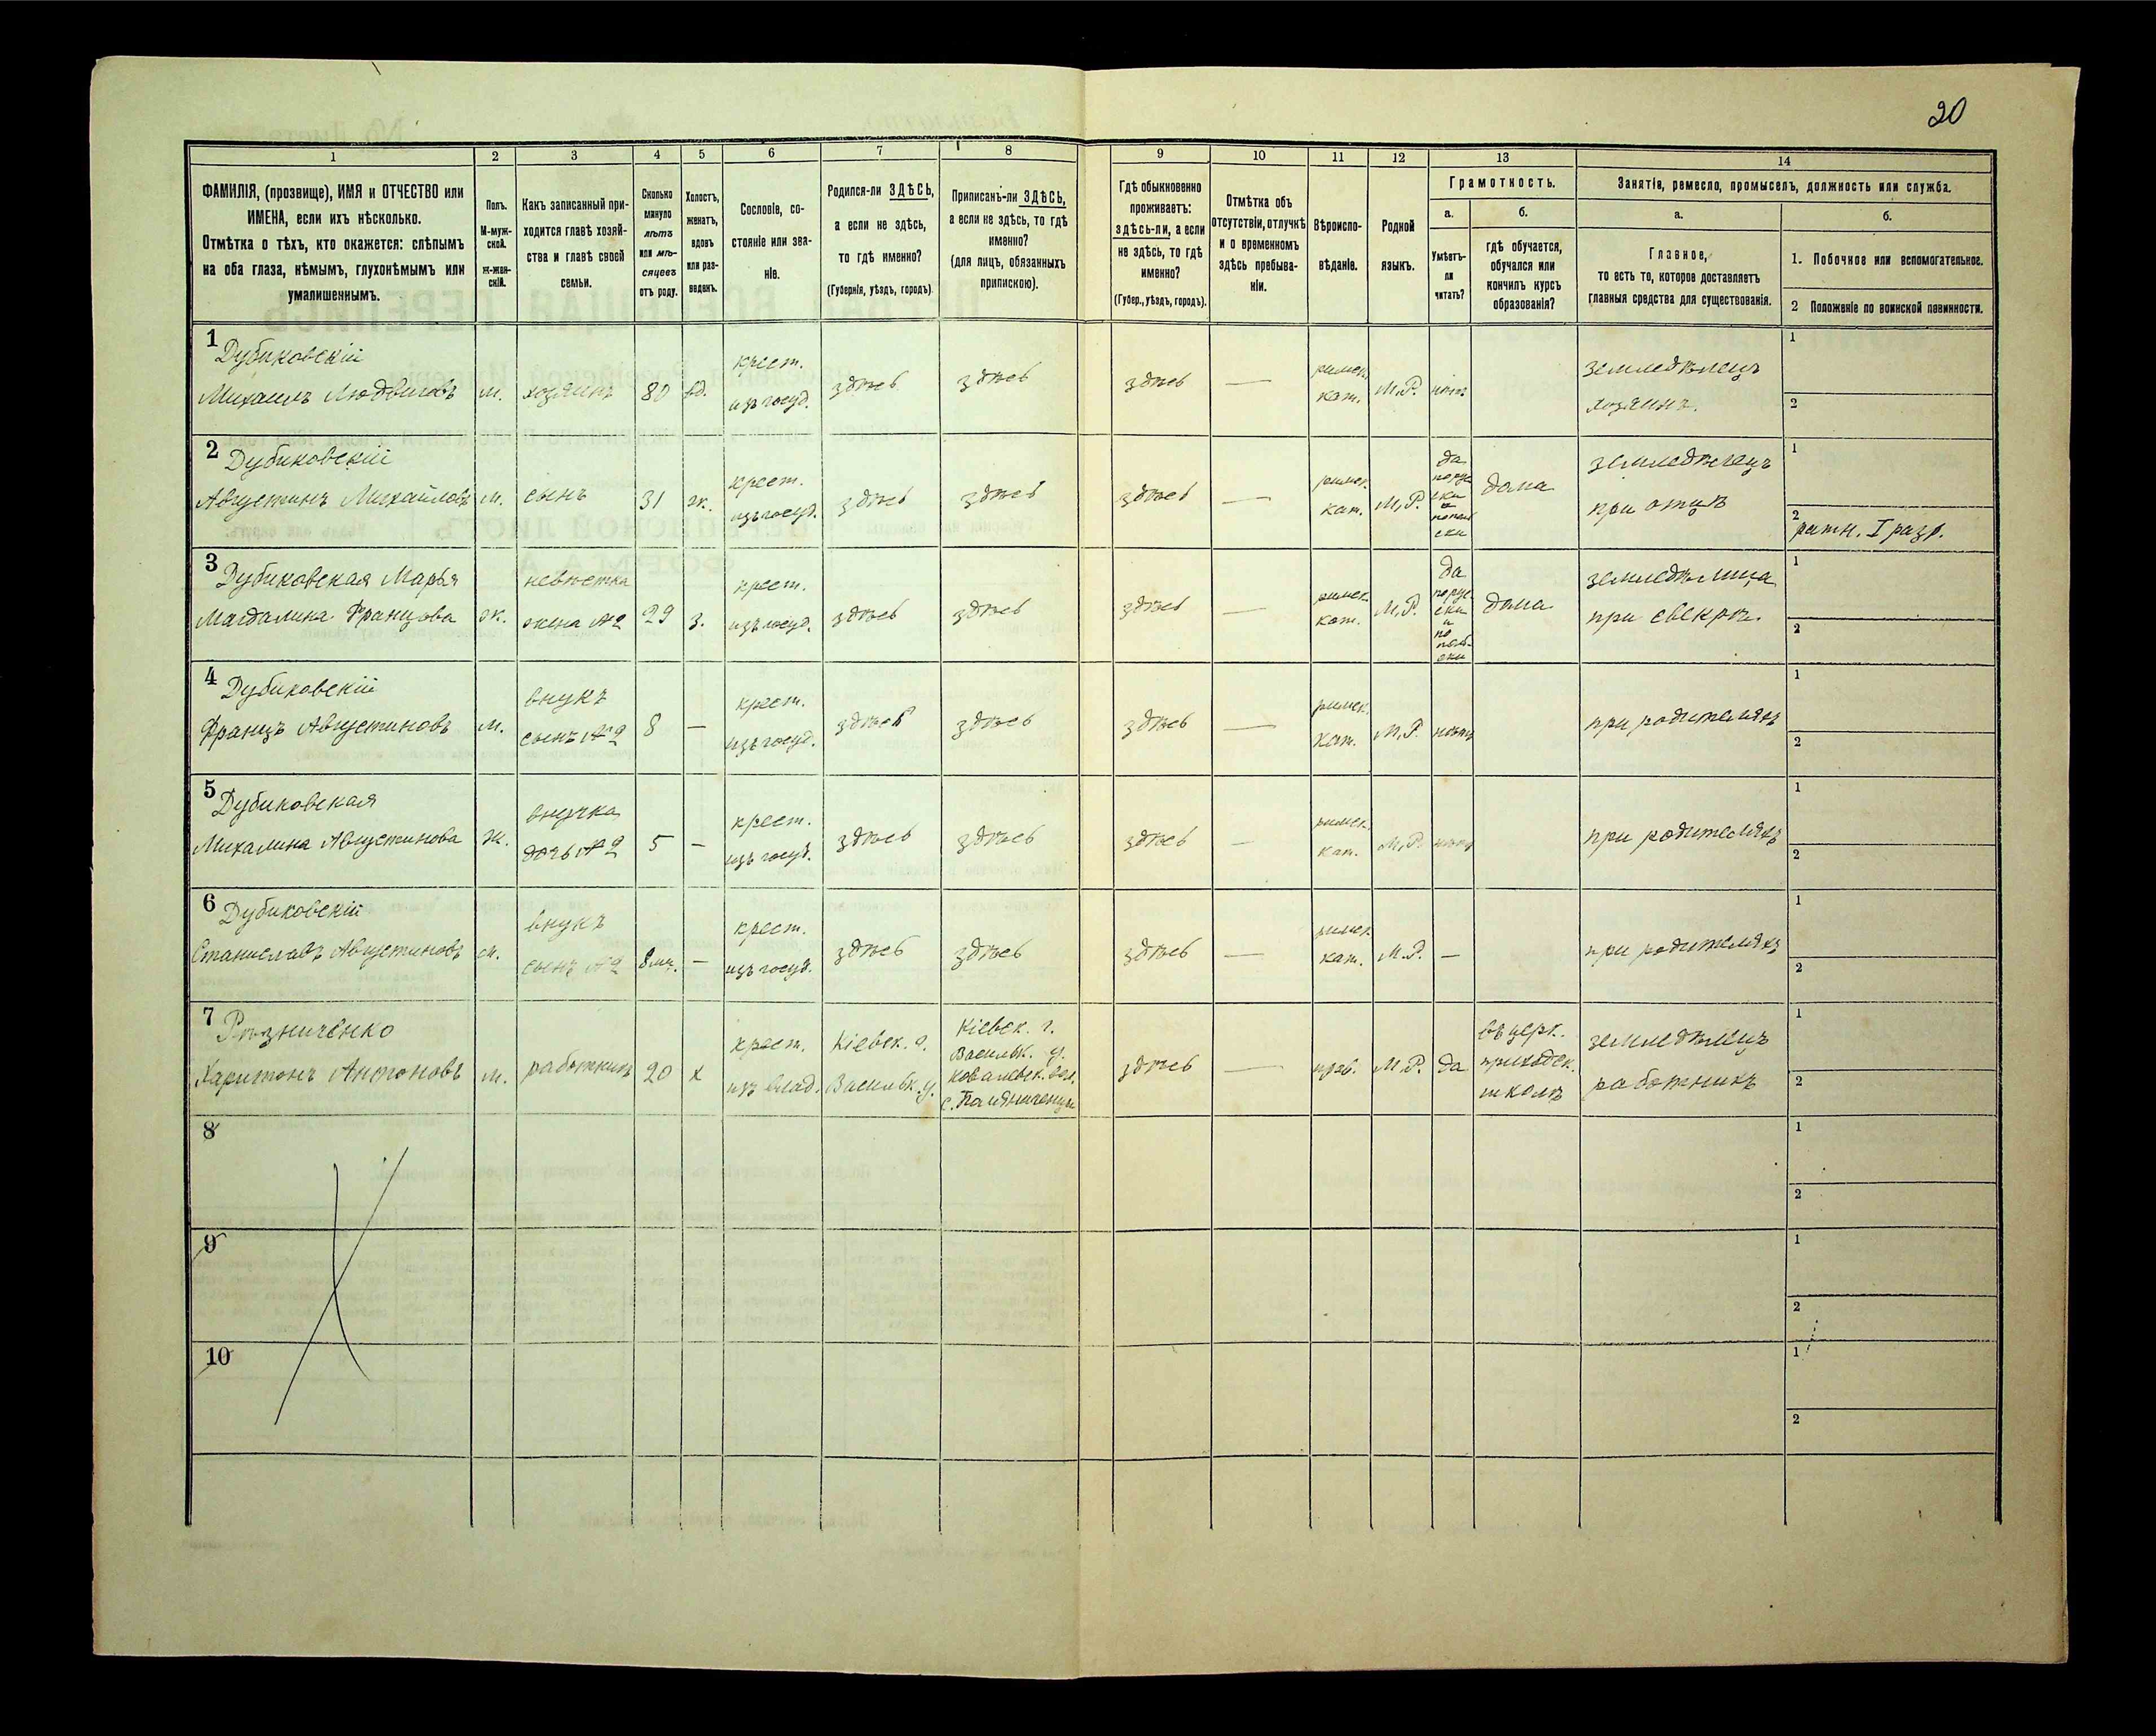 20
1 2 3 4 5 6 7 8 9 10 11 12 13 14
ФАМИЛІЯ, (прозвище), ИМЯ и ОТЧЕСТВО или
ИМЕНА, если ихъ нѣсколько.
Отмѣтка о тѣхъ, кто окажется: слѣпымъ
на оба глаза, нѣмымъ, глухонѣмымъ или
умалишеннымъ.
Полъ.
М-муж-
ской.
Ж-жен-
скій.
Какъ записанный при-
ходится главѣ хозяй-
ства и главѣ своей
семьи.
Сколько
минуло
лѣтъ
или мѣ-
сяцевъ
отъ роду.
Холостъ,
женатъ,
вдовъ
или раз-
веденъ.
Сословіе, со-
стояніе или зва-
ніе.
Родился-ли ЗДѢСЬ,
а если не здѣсь,
то гдѣ именно?
(Губернія, уѣздъ, городъ)
Приписанъ-ли ЗДѢСЬ,
а если не здѣсь, то гдѣ
именно?
(для лицъ, обязанныхъ
припискою).
Гдѣ обыкновенно
проживаетъ:
здѣсь-ли, а если
не здѣсь, то гдѣ
именно?
(Губер., уѣздъ, городъ).
Отмѣтка объ
отсутствіи, отлучкѣ
и о временномъ
здѣсь пребыва-
ніи.
Вѣроиспо-
вѣданіе.
Родной
языкъ.
Грамотность.
а.
Умѣетъ-
ли
читать?
б.
гдѣ обучается,
обучался или
кончилъ курсъ
образованія?
Занятіе, ремесло, промыселъ, должность или служба.
а.
Главное,
то есть то, которое доставляетъ
главныя средства для существованія.
б.
1. Побочное или вспомогательное.
2 Положеніе по воинской повинности.
1
Дубиковскій
Михаилъ Людвиговъ
м.
хозяинъ
80
вд.
крест.
изъ госуд.
здѣсь
здѣсь
здѣсь
—
римск.
кат.
М.Р.
нѣтъ
земледѣлецъ
хозяинъ.
1
2
2
Дубиковскій
Августинъ Михайловъ
м.
сынъ
31
ж.
крест.
изъ госуд.
здѣсь
здѣсь
здѣсь
—
римск.
кат.
М.Р.
да
по рус
ски
и
по поль
ски
дома
земледѣлецъ
при отцѣ
1
2
ратн. I разр.
3
Дубиковская Марья
Магдалина Францова
ж.
невѣстка
жена №2
29
з.
крест.
изъ госуд.
здѣсь
здѣсь
здѣсь
—
римск.
кат.
М.Р.
да
по рус
ски
и
по
поль-
ски
дома
земледѣлица
при свекрѣ.
1
2
4
Дубиковскій
Францъ Августиновъ
м.
внукъ
сынъ №2
8
—
крест.
изъ госуд.
здѣсь
здѣсь
здѣсь
—
римск.
кат.
М.Р.
нѣтъ
при родителяхъ
1
2
5
Дубиковская
Михалина Августинова
ж.
внучка
дочь №2
5
—
крест.
изъ госуд.
здѣсь
здѣсь
здѣсь
—
римск.
кат.
М.Р.
нѣтъ
при родителяхъ
1
2
6
Дубиковскій
Станиславъ Августиновъ
м.
внукъ
сынъ №2
8 мц.
—
крест.
изъ госуд.
здѣсь
здѣсь
здѣсь
—
римск.
кат.
М.Р.
—
при родителяхъ
1
2
7
Рѣзниченко
Харитонъ Антоновъ
м.
работникъ
20
х
крест.
изъ влад.
Кіевск. г.
Васильк. у.
Кіевск. г.
Васильк. у.
Ковалевск. вол.
с. Паляниченцы
здѣсь
—
прав.
М.Р.
да
въ церк.
приходск.
школѣ
земледѣлецъ
работникъ
1
2
8
1
2
9
1
2
10
1
2